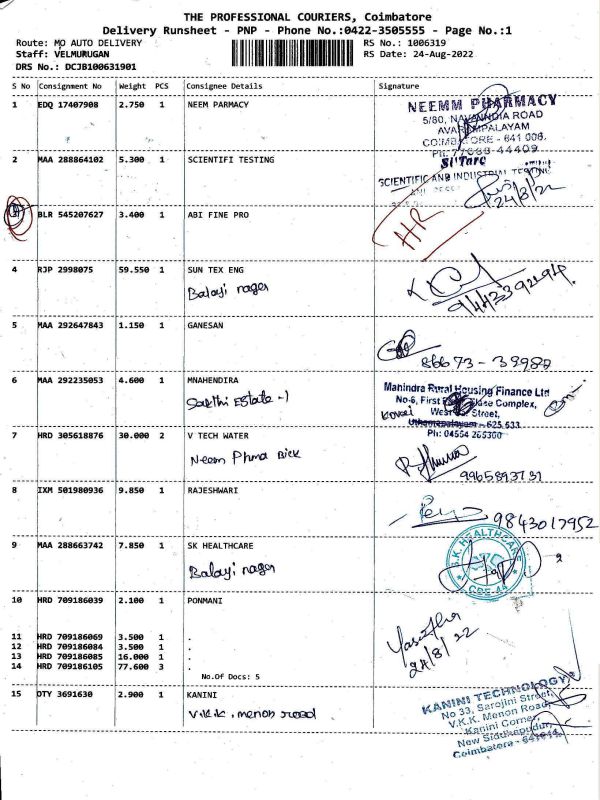 THE PROFESSIONAL COURIERS, Coimbatore
Delivery Runsheet - PNP - Phone No.:0422-3505555 - Page No.:1
Route: MO AUTO DELIVERY RS No.: 1006319
Staff: VELMURUGAN RS Date: 24-Aug-2022
DRS No.: DCJB100631901
S No Consignment No Weight PCS Consignee Details Signature
1 EDQ 17407908 2.750 1 NEEM PARMACY
NEEMM PHARMACY
5/80, NAVAINDIA ROAD
AVARAMPALAYAM
COIMBATORE - 641 006.
PH: 77088 44409
2 MAA 288864102 5.300 1 SCIENTIFI TESTING
Si'Tarc
SCIENTIFIC AND INDUSTRIAL TESTING
24/8/22
BLR 545207627 3.400 1 ABI FINE PRO
HR
4 RJP 2998075 59.550 1 SUN TEX ENG
Balaji nager
5 MAA 292647843 1.150 1 GANESAN
86673-39987
6 MAA 292235053 4.600 1 MNAHENDIRA
Sakthi Estate-1
Mahindra Rural Housing Finance Ltd
No-6, First Complex,
West Street,
Uthamapalayam - 625 533
Ph: 04554 265300
7 HRD 305618876 30.000 2 V TECH WATER
Neem Phma Bick
9965893731
8 IXM 501980936 9.850 1 RAJESHWARI
9843017952
9 MAA 288663742 7.850 1 SK HEALTHCARE
Balaji nager
S.K. HEALTHCARE
CBE-44
10 HRD 709186039 2.100 1 PONMANI
11 HRD 709186069 3.500 1 .
12 HRD 709186084 3.500 1 .
13 HRD 709186085 16.000 1 .
14 HRD 709186105 77.600 3 .
24/8/22
No.Of Docs: 5
15 OTY 3691630 2.900 1 KANINI
V.K.K. menon road
KANINI TECHNOLOGY
No 33, Sarojini Street,
V.K.K. Menon Road,
Kanini Corner,
New Siddhapudur,
Coimbatore - 641044.